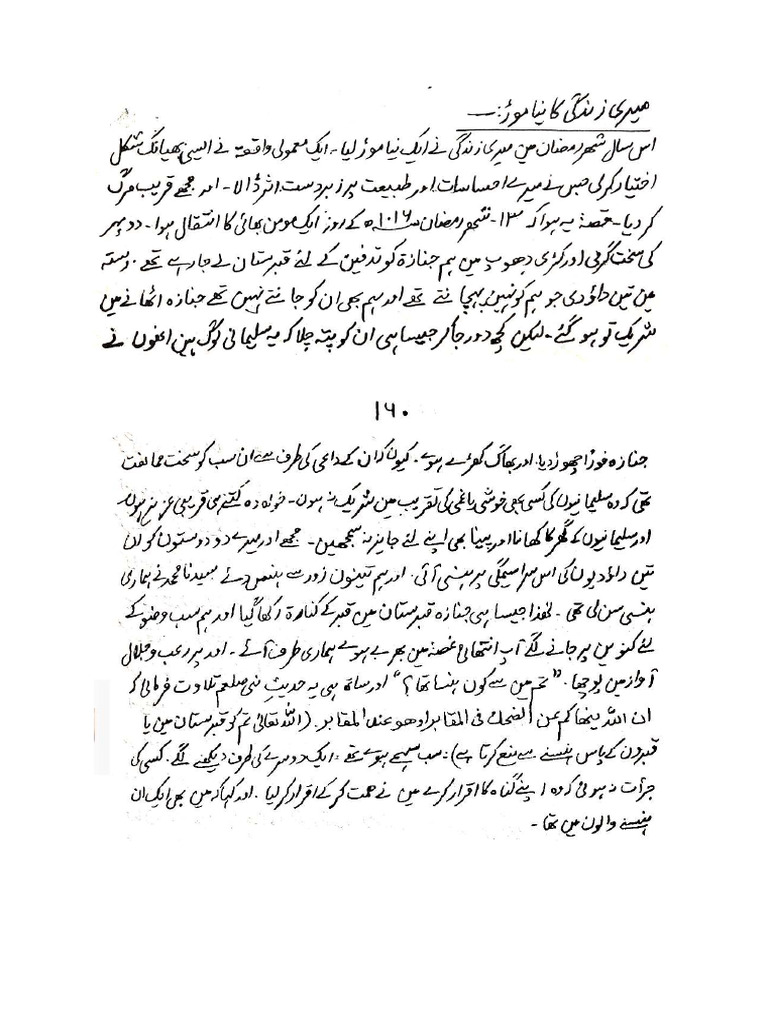 میری زندگی کا نیا موڑ :۔
اس سال شھر رمضان میں میری زندگی نے ایک نیا موڑ لیا۔ ایک معمولی واقعہ نے ایسی بھیانک شکل
اختیار کرلی جس نے میرے احساسات اور طبیعت پر زبردست اثر ڈالا۔ اور مجھے قریب مرگ
کر دیا۔ قصہ یہ ہوا کہ ۱۳۔ شھر رمضان ۱۰۱۶ھ کے روز ایک مومن بھائی کا انتقال ہوا۔ دوپہر
کی سخت گرمی اور کڑی دھوپ میں ہم جنازہ کو تدفین کے لئے قبرستان لے جارہے تھے۔ رستہ
میں تین داؤدی جو ہم کو نہیں پہچانتے تھے اور ہم بھی ان کو جانتے نہیں تھے جنازہ اٹھانے میں
شریک تو ہو گئے۔ لیکن کچھ دور جاکر جیسا ہی ان کو پتہ چلا کہ یہ سلیمانی لوگ ہیں انھوں نے
۱۶۰
جنازہ فوراً چھوڑ دیا۔ اور بھاگ کھڑے ہوے۔ کیوں کہ ان کے داعی کی طرف سے ان سب کو سخت ممانعت
تھی کہ وہ سلیمانیوں کی کسی بھی خوشی یا غمی کی تقریب میں شریک نہ ہوں۔ خواہ وہ کتنے ہی قریبی عزیز ہوں
اور سلیمانیوں کے گھر کا کھانا اور پینا بھی اپنے لئے جایز نہ سمجھیں۔ مجھے اور میرے دو دوستوں کو ان
تین داؤدیوں کی اس سراسیمگی پر ہنسی آئی۔ اور ہم تینوں زور سے ہنس دئے سیدنا محمد نے ہماری
ہنسی سن لی تھی۔ لھذا جیسا ہی جنازہ قبرستان میں قبر کے کنارہ رکھا گیا اور ہم سب وضو کے
لئے کنویں پر جانے لگے آپ انتھائی غصہ میں بھرے ہوے ہماری طرف آئے۔ اور پر رعب و جلال
آواز میں پوچھا۔ "تم میں سے کون ہنسا تھا؟" اور ساتھ ہی یہ حدیث نبی صلعم تلاوت فرمائی کہ
ان اللہ ینھاکم عن الضحک فی المقابر او ھو عند المقابر۔ (اللہ تعالیٰ تم کو قبرستان میں یا
قبروں کے پاس ہنسنے سے منع کرتا ہے)۔ سب سہمے ہوے تھے۔ ایک دوسرے کی طرف دیکھنے لگے۔ کسی کی
جرأت نہ ہوئی کہ وہ اپنے گناہ کا اقرار کرے میں نے ھمت کر کے اقرار کر لیا۔ اور کہا کہ میں بھی ایک ان
ہنسنے والوں میں تھا۔